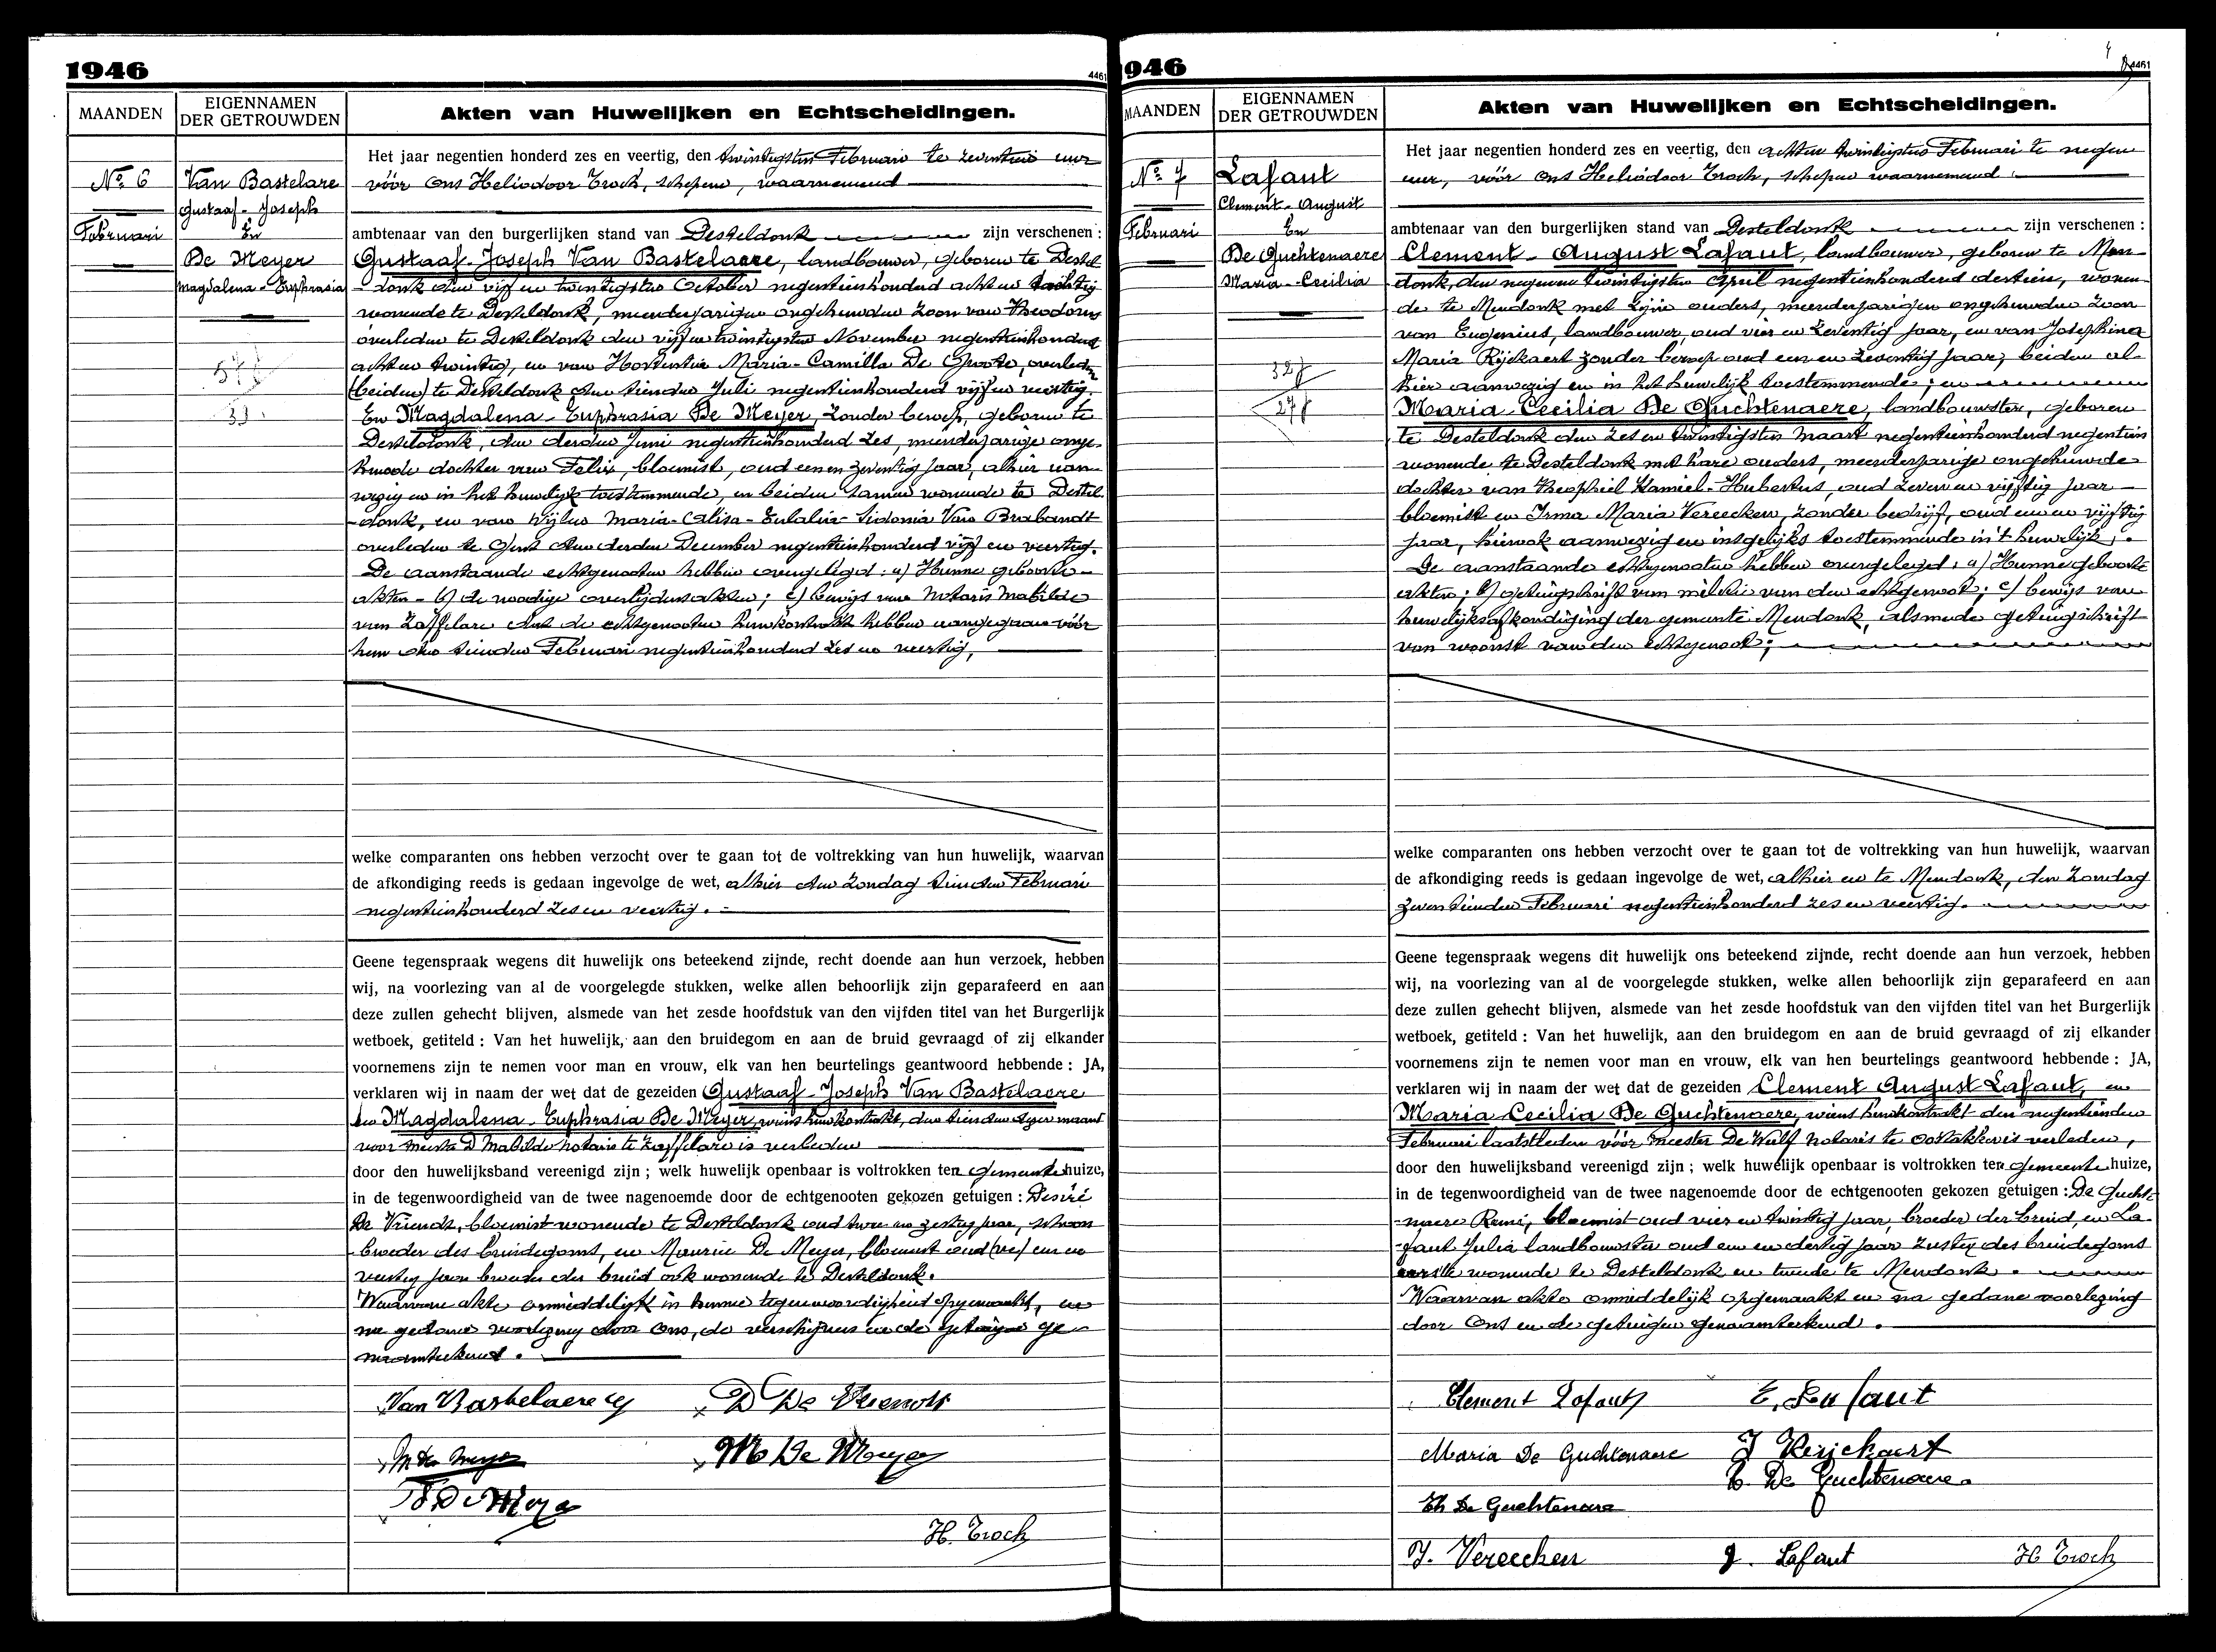 1946
4461
MAANDEN
EIGENNAMEN
DER GETROUWDEN
Akten van Huwelijken en Echtscheidingen.
No. 6
Februari
Van Bastelare
Gustaaf-Joseph
En
De Meyer
Magdalena-Euphrasia
33
Het jaar negentien honderd zes en veertig, den twintigsten Februari te zeventien uur
vóór Ons Heliodoor Troch, schepen, waarnemend
ambtenaar van den burgerlijken stand van Desteldonk zijn verschenen :
Gustaaf-Joseph Van Bastelaere, landbouwer, geboren te Destel
donk den vijf en twintigsten October negentienhonderd acht en
wonende te Desteldonk, meerderjarigen ongehuwden zoon van Theodorus
overleden te Desteldonk den vijf en twintigsten November negentienhonderd
acht en twintig, en van Hortentia Maria-Camilla De Groote, overleden
(beiden) te Desteldonk den tienden Juli negentienhonderd vijf en veertig.
En Magdalena-Euphrasia De Meyer, zonder beroep, geboren te
Desteldonk, den derden Juni negentienhonderd zes, meerderjarige onge-
huwde dochter van Felix, bloemist, oud een en zeventig jaar, alhier aan-
wezig en in het huwelijk toestemmende, en beiden samen wonende te Destel
-donk, en van wijlen Maria-Elisa-Eulalia-Sidonia Van Brabandt
overleden te Gent den derden December negentienhonderd vijf en veertig.
De aanstaande echtgenooten hebben overgelegd: a) Hunne geboorte-
akten - b) de noodige overlijdensakten; c) bewijs van Notaris Mabilde
van Zaffelare dat de echtgenooten huwkontrakt hebben aangegaan vóór
hem den tienden Februari negentienhonderd zes en veertig,
welke comparanten ons hebben verzocht over te gaan tot de voltrekking van hun huwelijk, waarvan
de afkondiging reeds is gedaan ingevolge de wet, alhier den Zondag tienden Februari
negentienhonderd zes en veertig.
Geene tegenspraak wegens dit huwelijk ons beteekend zijnde, recht doende aan hun verzoek, hebben
wij, na voorlezing van al de voorgelegde stukken, welke allen behoorlijk zijn geparafeerd en aan
deze zullen gehecht blijven, alsmede van het zesde hoofdstuk van den vijfden titel van het Burgerlijk
wetboek, getiteld : Van het huwelijk, aan den bruidegom en aan de bruid gevraagd of zij elkander
voornemens zijn te nemen voor man en vrouw, elk van hen beurtelings geantwoord hebbende : JA,
verklaren wij in naam der wet dat de gezeiden Gustaaf-Joseph Van Bastelaere
en Magdalena-Euphrasia De Meyer, wiens huwkontrakt, den tienden dezer maand
voor meester D Mabilde notaris te Zaffelare is verleden
door den huwelijksband vereenigd zijn ; welk huwelijk openbaar is voltrokken ten gemeentehuize,
in de tegenwoordigheid van de twee nagenoemde door de echtgenooten gekozen getuigen : Desiré
De Vriendt, bloemist wonende te Desteldonk oud twee en zestig jaar, schoon
-broeder des bruidegoms, en Maurice De Meyer, bloemist oud een en
veertig jaar broeder der bruid ook wonende te Desteldonk.
Waarvan akte onmiddelijk in hunne tegenwoordigheid opgemaakt, en
na gedane voorlezing door Ons, de verschijners en de getuigen ge-
naamteekend.
Van Bastelaere G D De Vriendt
M De Meyer M De Meyer
F De Meyer
H. Troch
1946
4461
MAANDEN
EIGENNAMEN
DER GETROUWDEN
Akten van Huwelijken en Echtscheidingen.
No. 7
Februari
Lafaut
Clement-August
En
De Guchtenaere
Maria-Cecilia
Het jaar negentien honderd zes en veertig, den achten twintigsten Februari te negen
uur, vóór Ons Heliodoor Troch, schepen waarnemend
ambtenaar van den burgerlijken stand van Desteldonk zijn verschenen :
Clement-August Lafaut, landbouwer, geboren te Men-
donk, den negenen twintigsten April negentienhonderd dertien, wonen-
de te Mendonk met zijne ouders, meerderjarigen ongehuwden zoon
van Eugenius, landbouwer, oud vier en zeventig jaar, en van Josephina
Maria Rijckaert zonder beroep oud een en zeventig jaar; beiden al-
hier aanwezig en in het huwelijk toestemmende; en
Maria Cecilia De Guchtenaere, landbouwster, geboren
te Desteldonk den zes en twintigsten Maart negentienhonderd negentien
wonende te Desteldonk met hare ouders, meerderjarige ongehuwde
dochter van Theophiel Kamiel-Hubertus, oud zeven en vijftig jaar-
bloemist en Irma Maria Vereecken, zonder bedrijf, oud een en vijftig
jaar, hier ook aanwezig en insgelijks toestemmende in 't huwelijk;
De aanstaande echtgenooten hebben overgelegd: a) Hunne geboorte
akten; b) getuigschrift van militie van den echtgenoot; c) bewijs van
huwelijksafkondiging der gemeente Mendonk, alsmede getuigschrift
van woonst van den echtgenoot;
welke comparanten ons hebben verzocht over te gaan tot de voltrekking van hun huwelijk, waarvan
de afkondiging reeds is gedaan ingevolge de wet, alhier en te Mendonk, den Zondag
zeventienden Februari negentienhonderd zes en veertig.
Geene tegenspraak wegens dit huwelijk ons beteekend zijnde, recht doende aan hun verzoek, hebben
wij, na voorlezing van al de voorgelegde stukken, welke allen behoorlijk zijn geparafeerd en aan
deze zullen gehecht blijven, alsmede van het zesde hoofdstuk van den vijfden titel van het Burgerlijk
wetboek, getiteld : Van het huwelijk, aan den bruidegom en aan de bruid gevraagd of zij elkander
voornemens zijn te nemen voor man en vrouw, elk van hen beurtelings geantwoord hebbende : JA,
verklaren wij in naam der wet dat de gezeiden Clement August Lafaut, en
Maria Cecilia De Guchtenaere, wiens huwkontrakt den negentienden
Februari laatstleden vóór meester De Wulf notaris te Oostakker is verleden,
door den huwelijksband vereenigd zijn ; welk huwelijk openbaar is voltrokken ten gemeentehuize,
in de tegenwoordigheid van de twee nagenoemde door de echtgenooten gekozen getuigen : De Guchte
-naere Remi, bloemist oud vier en twintig jaar, broeder der bruid, en La-
-faut Julia landbouwster oud een en dertig jaar zuster des bruidegoms
eerste wonende te Desteldonk en tweede te Mendonk.
Waarvan akte onmiddelijk opgemaakt en na gedane voorlezing
door Ons en de getuigen genaamteekend.
Clement Lafaut E. Lafaut
Maria De Guchtenaere J Rijckaert
De Guchtenaere
Th De Guchtenaere
I. Vereecken J. Lafaut H Troch